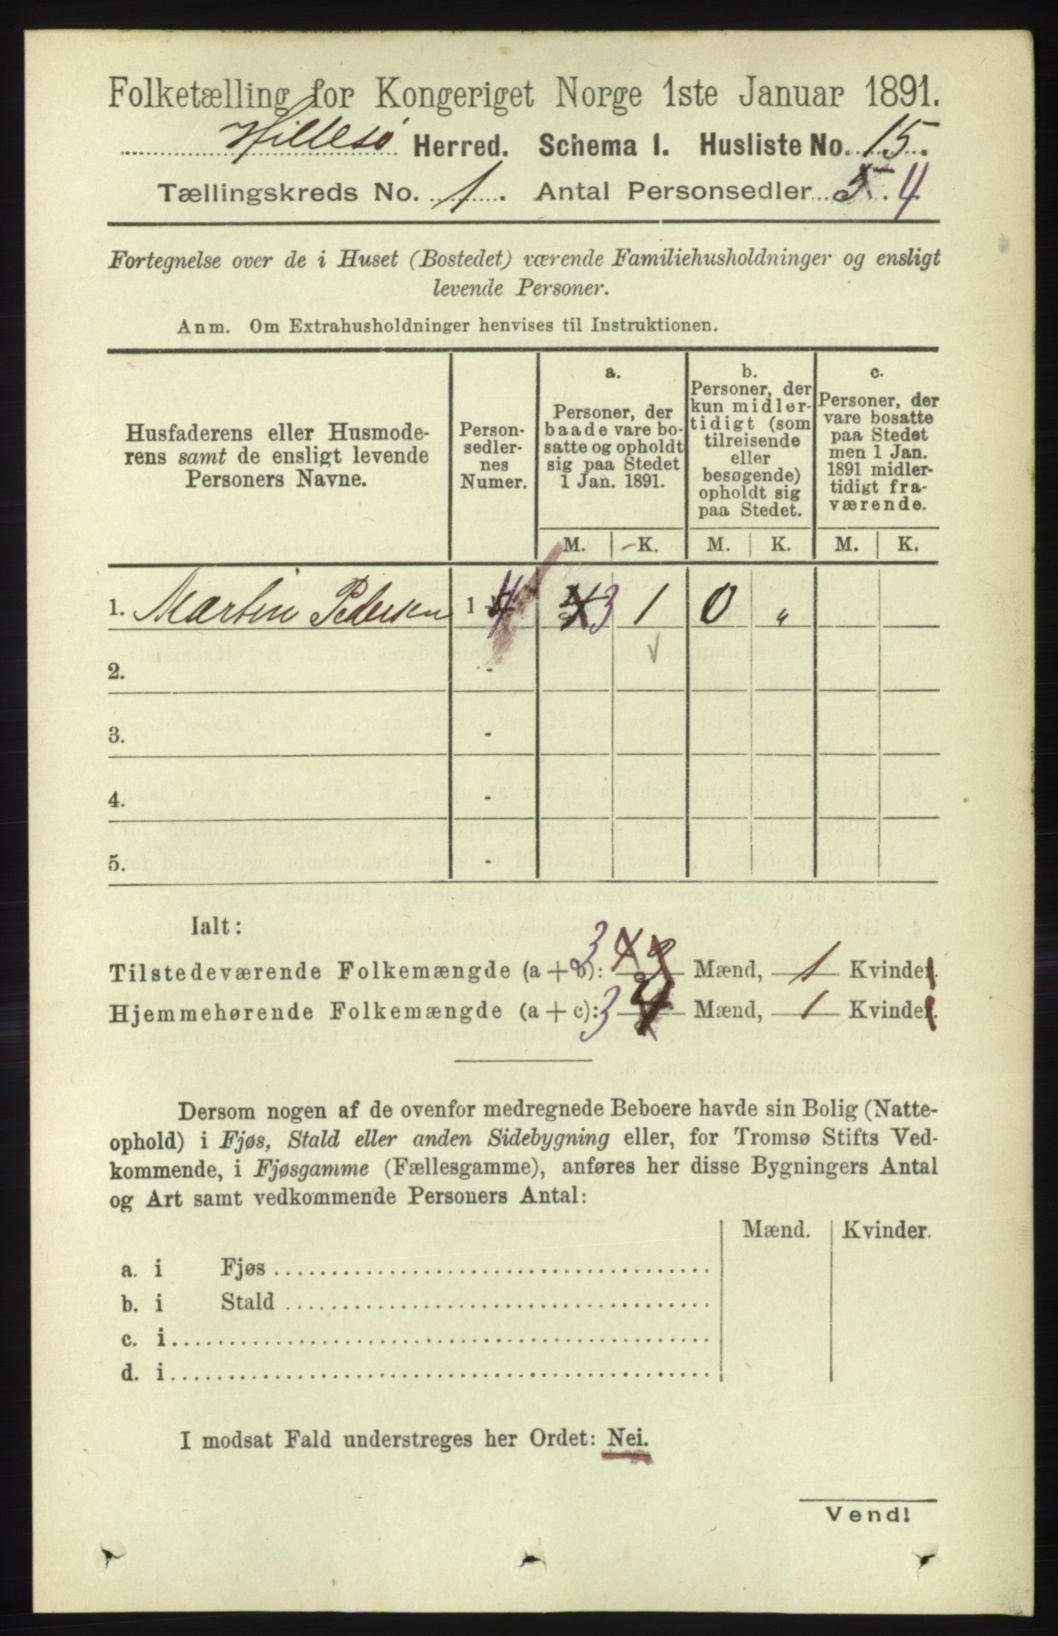 Folketælling for Kongeriget Norge 1ste Januar 1891.
Hillesø Herred. Schema I. Husliste No. 15.
Tællingskreds No. 1. Antal Personsedler 5. 4
Fortegnelse over de i Huset (Bostedet) værende Familiehusholdninger og ensligt
levende Personer.
Anm. Om Extrahusholdninger henvises til Instruktionen.
Husfaderens eller Husmode-
rens samt de ensligt levende
Personers Navne.
Person-
sedler-
nes
Numer.
a.
Personer, der
baade vare bo-
satte og opholdt
sig paa Stedet
1 Jan. 1891.
b.
Personer, der
kun midler-
tidigt (som
tilreisende
eller
besøgende)
opholdt sig
paa Stedet.
c.
Personer, der
vare bosatte
paa Stedet
men 1 Jan.
1891 midler-
tidigt fra-
værende.
M. K. M. K. M. K.
1. Martin Pedersen 1 - 4 4 3 1 0 „
2. -
3. -
4. -
5. -
Ialt:
Tilstedeværende Folkemængde (a + b): 3 4 Mænd, 1 Kvinder.
Hjemmehørende Folkemængde (a + c): 3 4 Mænd, 1 Kvinder.
Dersom nogen af de ovenfor medregnede Beboere havde sin Bolig (Natte-
ophold) i Fjøs, Stald eller anden Sidebygning eller, for Tromsø Stifts Ved-
kommende, i Fjøsgamme (Fællesgamme), anføres her disse Bygningers Antal
og Art samt vedkommende Personers Antal:
Mænd. Kvinder.
a. i Fjøs
b. i Stald
c. i
d. i
I modsat Fald understreges her Ordet: Nei.
Vend!